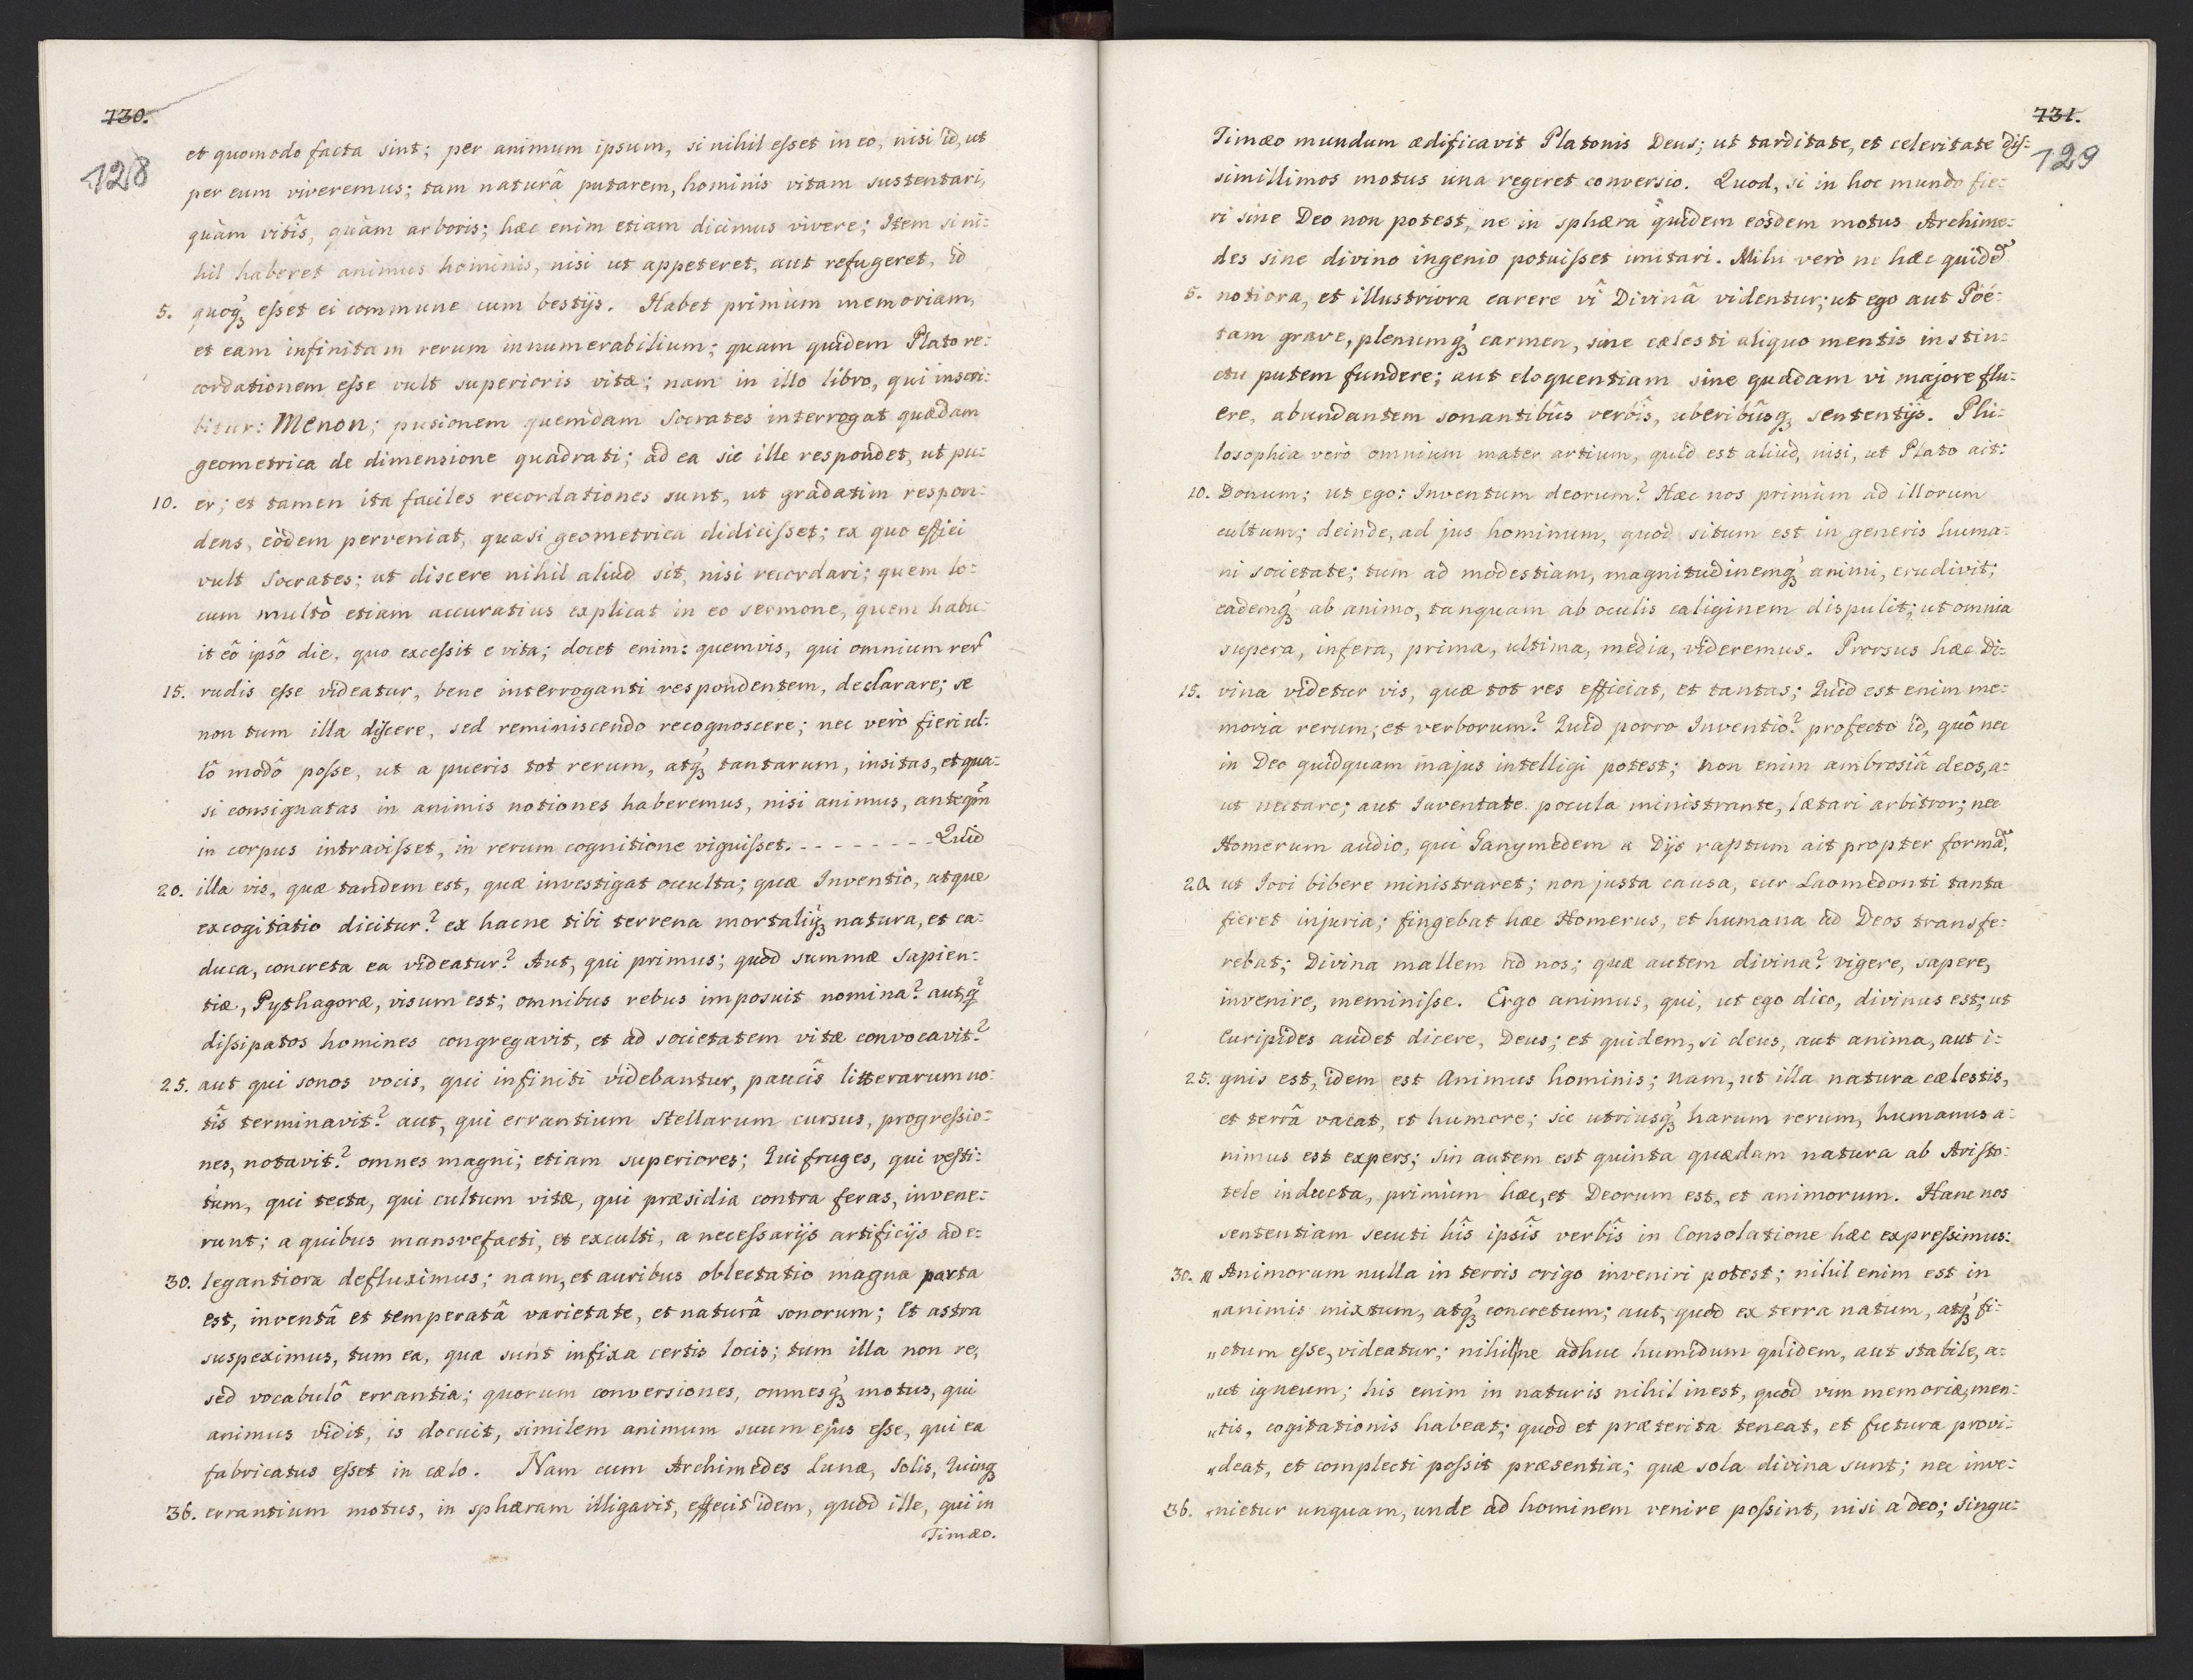 730.
128
et quomodo facta sint; per animum ipsum, si nihil eſset in eo, nisi id, ut
per eum viveremus; tam naturâ putarem, hominis vitam sustentari,
quàm vitîs, quàm arboris; hæc enim etiam dicimus vivere; Item si ni:
hil haberet animus hominis, nisi ut appeteret, aut refugeret, id
5. quoqꝫ eſset ei commune cum bestijs. Habet primùm memoriam,
et eam infinitam rerum innumerabilium; quam quidem Plato re:
cordationem eſse vult superioris vitæ; nam in illo libro, qui inscri:
bitur: Menon; pusionem quemdam Socrates interrogat quædam
geometrica de dimensione quadrati; ad ea sic ille respondet, ut pu:
10. er; et tamen ita faciles recordationes sunt, ut gradatim respon:
dens, eòdem perveniat, quasi geometrica didiciſset; ex quo effici
vult Socrates; ut discere nihil aliud sit, nisi recordari; quem lo:
cum multò etiam accuratius explicat in eo sermone, quem habu:
it eô ipsô die, quo exceſsit e vita; docet enim: quemvis, qui omnium rer̃
15. rudis eſse videatur, bene interroganti respondentem, declarare; se
non tum illa diſcere, sed reminiscendo recognoscere; nec verò fieri ul:
lô modô poſse, ut a pueris tot rerum, atqꝫ tantarum, insitas, et qua:
si consignatas in animis notiones haberemus, nisi animus, anteqm̃
in corpus intraviſset, in rerum cognitione viguiſset. - - - - - - - - Quid
20. illa vis, quæ tandem est, quæ investigat occulta; quæ Inventio, atque
excogitatio dicitur? ex hacne tibi terrena mortaliqꝫ natura, et ca:
duca, concreta ea videatur? Aut, qui primus; quod summæ Sapien:
tiæ, Pythagoræ, visum est; omnibus rebus imposuit nomina? aut, q̃
diſsipatos homines congregavit, et ad societatem vitæ convocavit?
25. aut qui sonos vocis, qui infiniti videbantur, paucîs litterarum no:
tîs terminavit? aut, qui errantium stellarum cursus, progreſsio:
nes, notavit? omnes magni; etiam superiores; Qui fruges, qui veſti:
tum, qui tecta, qui cultum vitæ, qui præsidia contra feras, invene:
runt; a quibus mansvefacti, et exculti, a neceſsarijs artificijs ad e:
30. legantiora defluximus; nam, et auribus oblectatio magna parta
est, inventâ et temperatâ varietate, et naturâ sonorum; Et astra
suspeximus, tum ea, quæ sunt infixa certis locis; tum illa non re,
sed vocabulô errantia; quorum conversiones, omnesqꝫ motus, qui
animus vidit, is docuit, similem animum suum ejus eſse, qui ea
fabricatus eſset in cælo. Nam cum Archimedes Lunæ, Solis, Quinqꝫ
36. errantium motus, in sphæram illigavit, effecit idem, quod ille, qui in
Timæo.
731.
129
Timæo mundum ædificavit Platonis Deus; ut tarditate, et celeritate diſ:
simillimos motus una regeret conversio. Quod, si in hoc mundo fie:
ri sine Deo non potest, ne in sphæra quidem eosdem motus Archime:
des sine divino ingenio potuiſset imitari. Mihi verò ne hæc quidẽ
5. notiora, et illustriora carere vî Divinâ videntur; ut ego aut Poé:
tam grave, plenumqꝫ carmen, sine cælesti aliquo mentis instin:
ctu putem fundere; aut eloquentiam sine quadam vi majore flu:
ere, abundantem sonantibûs verbîs, uberibûsqꝫ sententijs. Phi:
losophia verò omnium mater artium, quid est aliud, nisi, ut Plato ait:
10. Donum; ut ego: Inventum deorum? Hæc nos primùm ad illorum
cultum; deinde, ad jus hominum, quod situm est in generis huma:
ni societate; tum ad modestiam, magnitudinemqꝫ animi, erudivit;
eademqꝫ ab animo, tanquam ab oculis caliginem dispulit; ut omnia
supera, infera, prima, ultima, media, videremus. Prorsus hæc Di:
15. vina videtur vis, quæ tot res efficiat, et tantas; Quid est enim me:
moria rerum; et verborum? Quid porro Inventio? profecto id, quô nec
in Deo quidquam majus intelligi potest; non enim ambrosiâ deos, a:
ut nectare; aut Juventate pocula ministrante, lætari arbitror; nec
Homerum audio, qui Ganymedem a Dijs raptum ait propter formã,
20. ut Jovi bibere ministraret; non justa causa, cur Laomedonti tanta
fieret injuria; fingebat hæc Homerus, et humana ad Deos transfe:
rebat; Divina mallem ad nos; quæ autem divina? vigere, sapere,
invenire, meminiſse. Ergo animus, qui, ut ego dico, divinus est; ut
Euripides audet dicere, Deus; et quidem, si deus, aut anima, aut i:
25. gnis est, idem est Animus hominis; nam, ut illa natura cælestis,
et terrâ vacat, et humore; sic utriusqꝫ harum rerum, humanus a:
nimus est expers; sin autem est quinta quædam natura ab Ariſto:
tele inducta, primùm hæc, et Deorum est, et animorum. Hanc nos
sententiam secuti hîs ipsîs verbîs in Consolatione hæc expreſsimus:
30. „ Animorum nulla in terris origo inveniri potest; nihil enim est in
„animis mixtum, atqꝫ concretum; aut, quod ex terra natum, atqꝫ fi:
„ctum eſse, videatur; nihil|ne adhuc humidum quidem, aut stabile, a:
„ut igneum; his enim in naturis nihil inest, quod vim memoriæ, men:
„tis, cogitationis habeat; quod et præterita teneat, et futura provi:
„deat, et complecti poſsit præsentia; quæ sola divina sunt; nec inve:
36. „nietur unquam, unde ad hominem venire poſsint, nisi a deo; Singu: